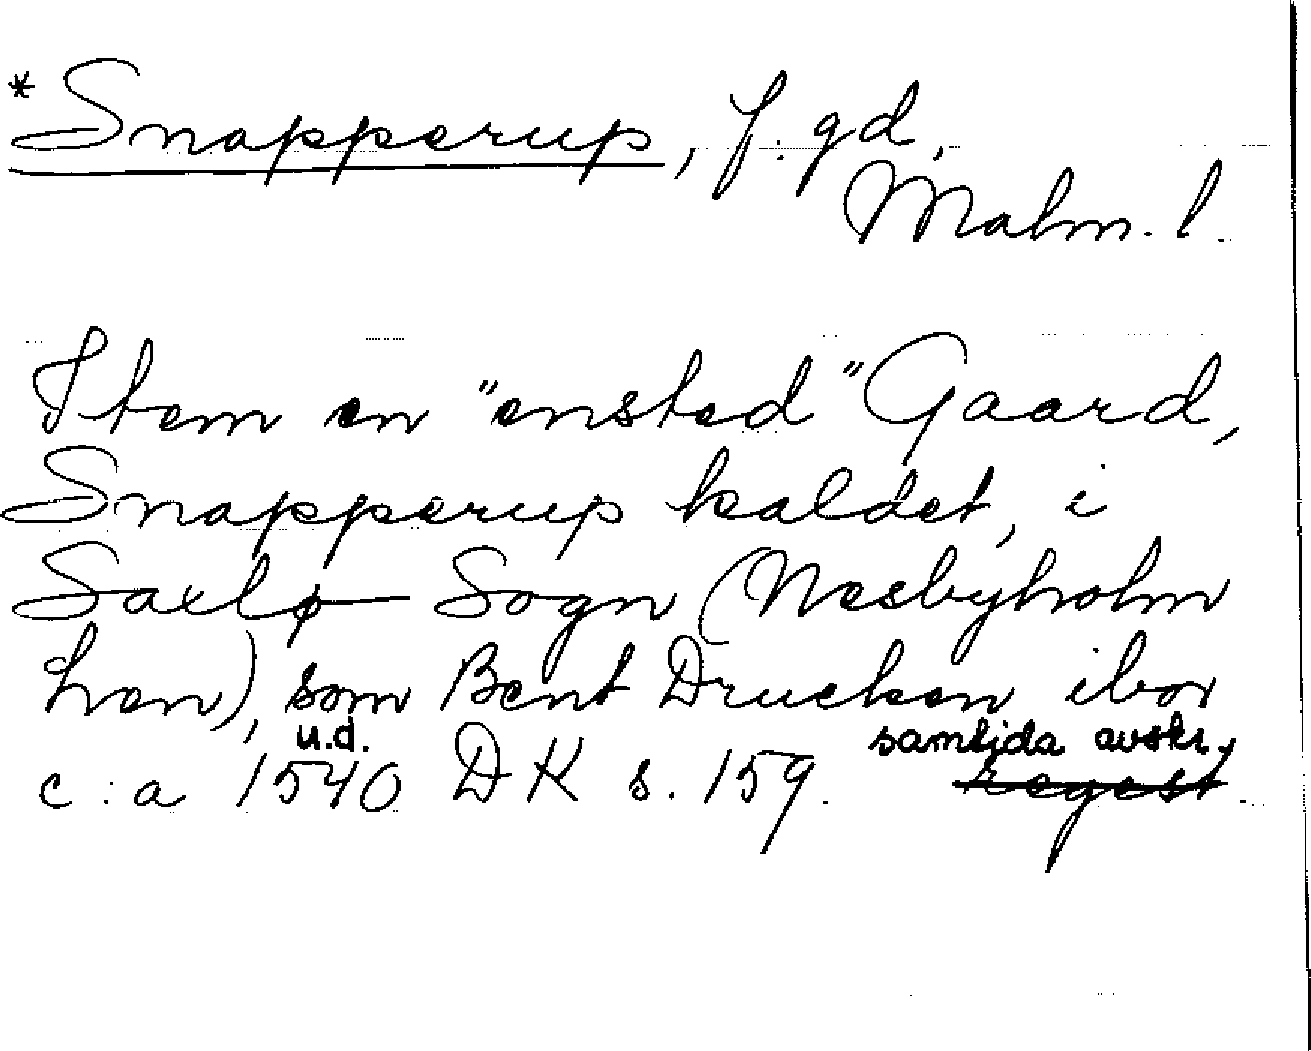 *Snapperup, f. gd,
Malm. l.
Item en "ensted" Gaard,
Snapperup kaldet, i
Saxlø Sogn (Nesbyholm
hen), som Bent Drucken ibor
u.d. samtida avskr.
c:a 1540 DK s. 159. regest